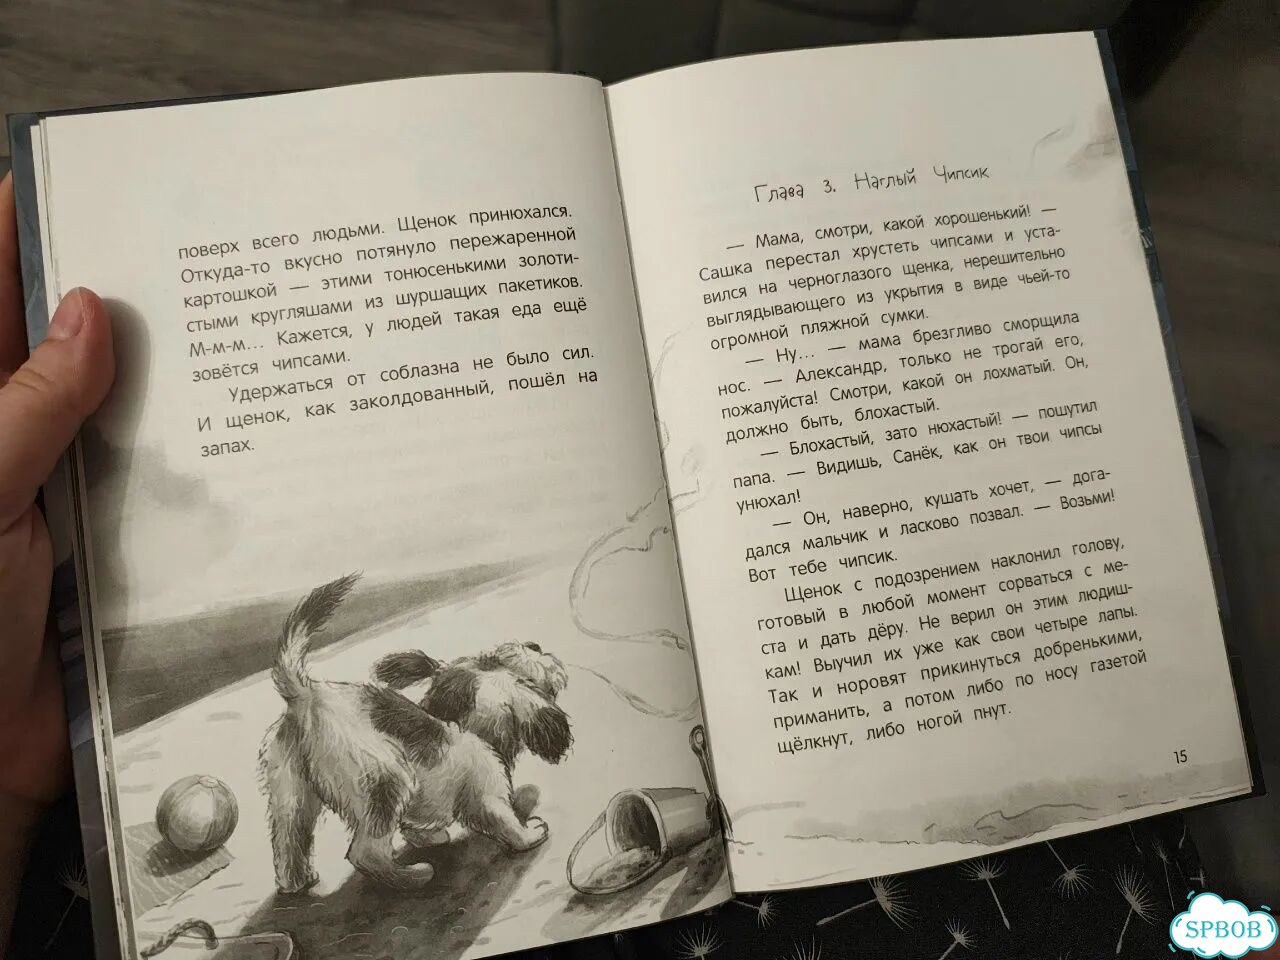 поверх всего людьми. Щенок принюхался.
Откуда-то вкусно потянуло пережаренной
картошкой — этими тонюсенькими золоти-
стыми кругляшами из шуршащих пакетиков.
М-м-м... Кажется, у людей такая еда ещё
зовётся чипсами.
Удержаться от соблазна не было сил.
И щенок, как заколдованный, пошёл на
запах.
Глава 3. Наглый Чипсик
— Мама, смотри, какой хорошенький! —
Сашка перестал хрустеть чипсами и уста-
вился на черноглазого щенка, нерешительно
выглядывающего из укрытия в виде чьей-то
огромной пляжной сумки.
— Ну... — мама брезгливо сморщила
нос. — Александр, только не трогай его,
пожалуйста! Смотри, какой он лохматый. Он,
должно быть, блохастый.
— Блохастый, зато нюхастый! — пошутил
папа. — Видишь, Санёк, как он твои чипсы
унюхал!
— Он, наверно, кушать хочет, — дога-
дался мальчик и ласково позвал. — Возьми!
Вот тебе чипсик.
Щенок с подозрением наклонил голову,
готовый в любой момент сорваться с ме-
ста и дать дёру. Не верил он этим людиш-
кам! Выучил их уже как свои четыре лапы.
Так и норовят прикинуться добренькими,
приманить, а потом либо по носу газетой
щёлкнут, либо ногой пнут.
15
SPBOB